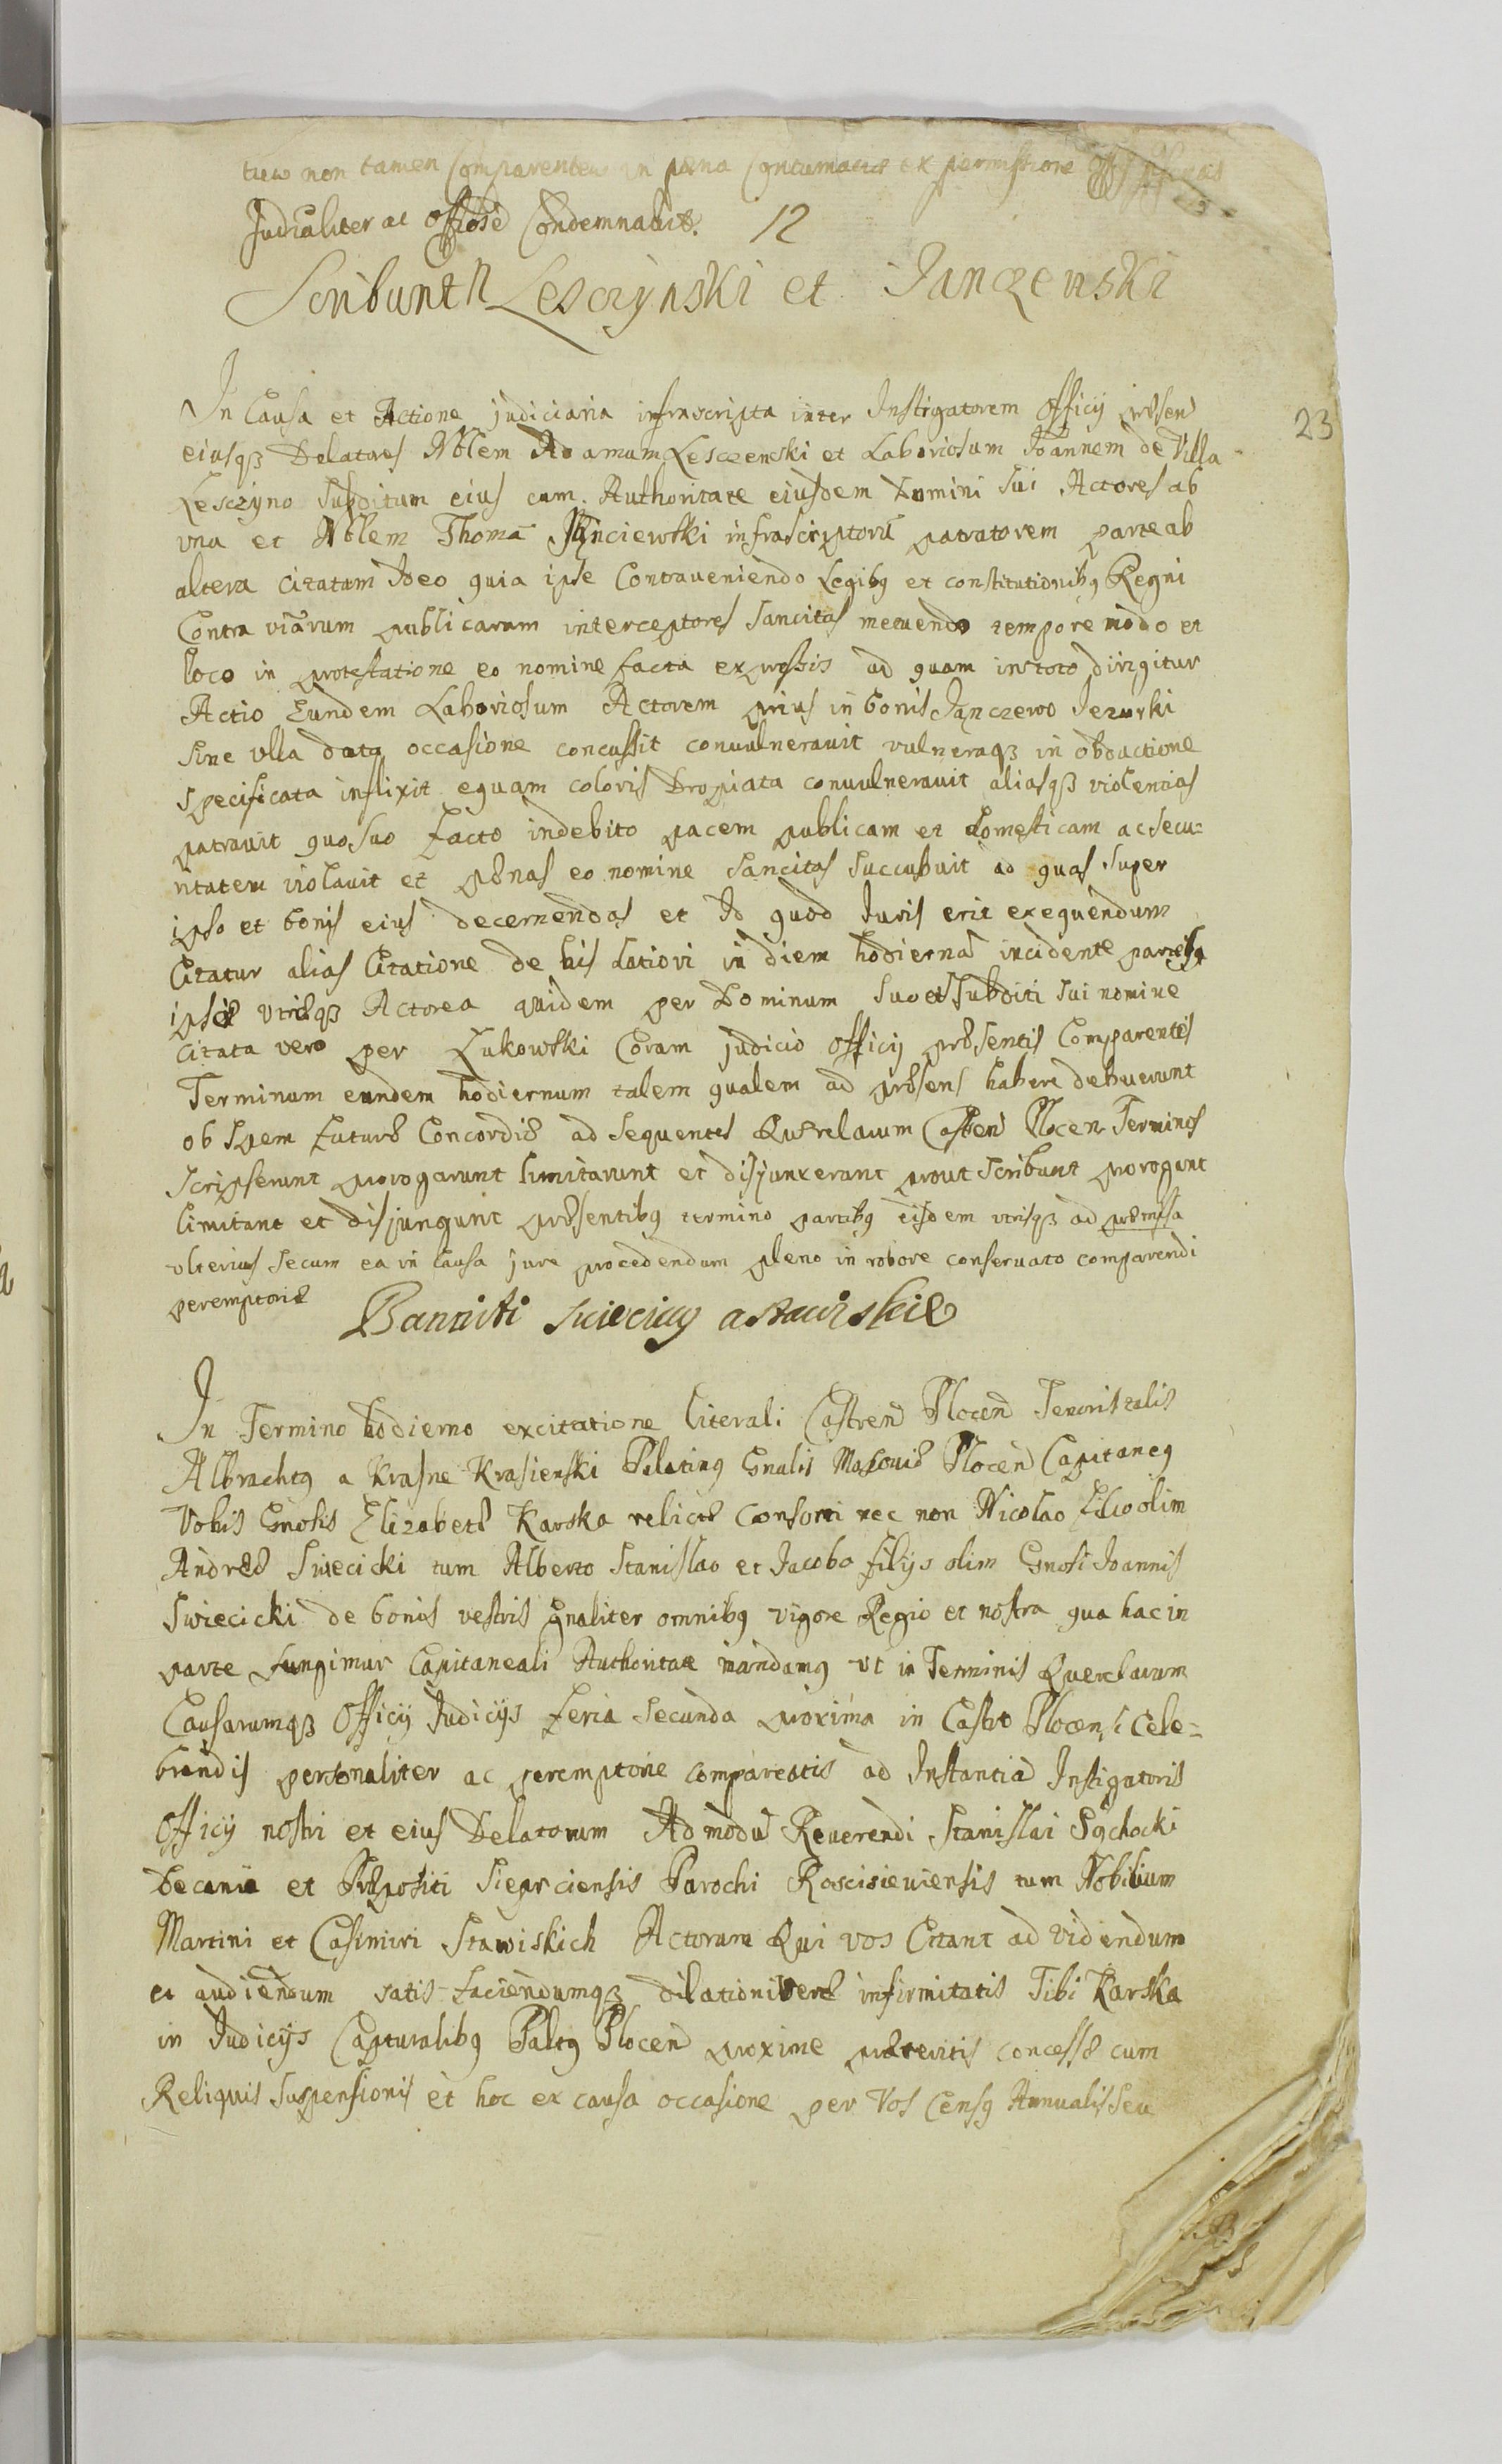 non tamen Comparentem in pœna Contumaciæ ex permissione
Judicialiter ac Officiose Condemnavit. 12
Scribunt Lesczynski et Janczewski
In Causa et Actione judiciaria infrascripta inter Instigatorem Officij præsen
23
eiusqꝫ Delatores Noblem Adamum Lesczenski et Laboriosum Joannem de Villa
Lesczyno Subditum eius cum Authoritate eiusdem Domini sui Actores ab
vna et Noblem Thomã Janciewski infrascriptorũ patratorem parte ab
altera Citatum Ideo quia ipse Contraveniendo Legibꝰ et constitutionibꝰ Regni
Contra viarum publicarum interceptores sancitas metuendo tempore modo et
loco in protestatione eo nomine facta expressis ad quam in toto dirigitur
Actio Eundem Laboriosum Actorem prius in bonis Janczewo Jezorki
sine vlla data occasione concussit convulneravit vulneraqꝫ in obductione
specificata inflixit equam coloris Dropiata convulneravit aliasqꝫ violentias
patravit quo suo facto indebito pacem publicam et domesticam ac secu=
ritatem violavit et pænas eo nomine sancitas succubuit ad quas super
ipso et bonis eius decernendas et Id quod Juris erit exequendum
Citatur alias Citatione de his latiori in diem hodiernã incidente partibꝰ
ipsis vtrisqꝫ Actorea quidem per Dominum suo et subditi sui nomine
Citata vero per Zukowski Coram judicio Officij præsentis Comparentes
Terminum eundem hodiernum talem qualem ad præsens habere debuerunt
ob spem futuræ Concordiæ ad sequentes Quærelarum Castren Plocen Terminos
scripserunt prorogarunt limitarunt et disjunxerunt prout scribunt prorogant
limitant et disjungunt præsentibꝰ termino partibꝰ eisdem vtrisqꝫ ad præmissa
vlterius secum ea in Causa jure procedendum pleno in robore conservato comparendi
peremptorie
Banniti Swieciccy a Stawiskie
In Termino hodierno ex citatione literali Castren Plocen Tenoris talis
Albrachtꝰ a Krasne Krasienski Palatinꝰ Gnalis Masoviæ Plocen Capitaneꝰ
Vobis Gnosis Elizabetæ Karska relictæ Consorti nec non Nicolao filio olim
Andreæ Swiecicki tum Alberto Stanislao et Jacobo filijs olim Gnosi Joannis
Swiecicki de bonis vestris gnaliter omnibꝰ vigore Regio et nostra qua hac in
parte fungimur Capitaneali Authoritate mandamꝰ vt in Terminis Querelarum
Causarumqꝫ Officij Judicijs feria secunda proxima in Castro Plocensi Cele=
brandis personaliter ac peremptorie compareatis ad Instantiã Instigatoris
Officij nostri et eius Delatorum Admodũ Reverendi Stanislai Sochocki
Decani et Præpositi Sieprciensis Parochi Rosciseviensis tum Nobilium
Martini et Casimiri Stawiskich Actorum Qui vos Citant ad videndum
et audiendum satis faciendumqꝫ dilationi veræ infirmitatis Tibi Karska
in Judicijs Capturalibꝰ Paltꝰ Plocen proxime præteritis concessæ cum
Reliquis suspensionis et hoc ex causa occasione per Vos Censꝰ Annualis seu